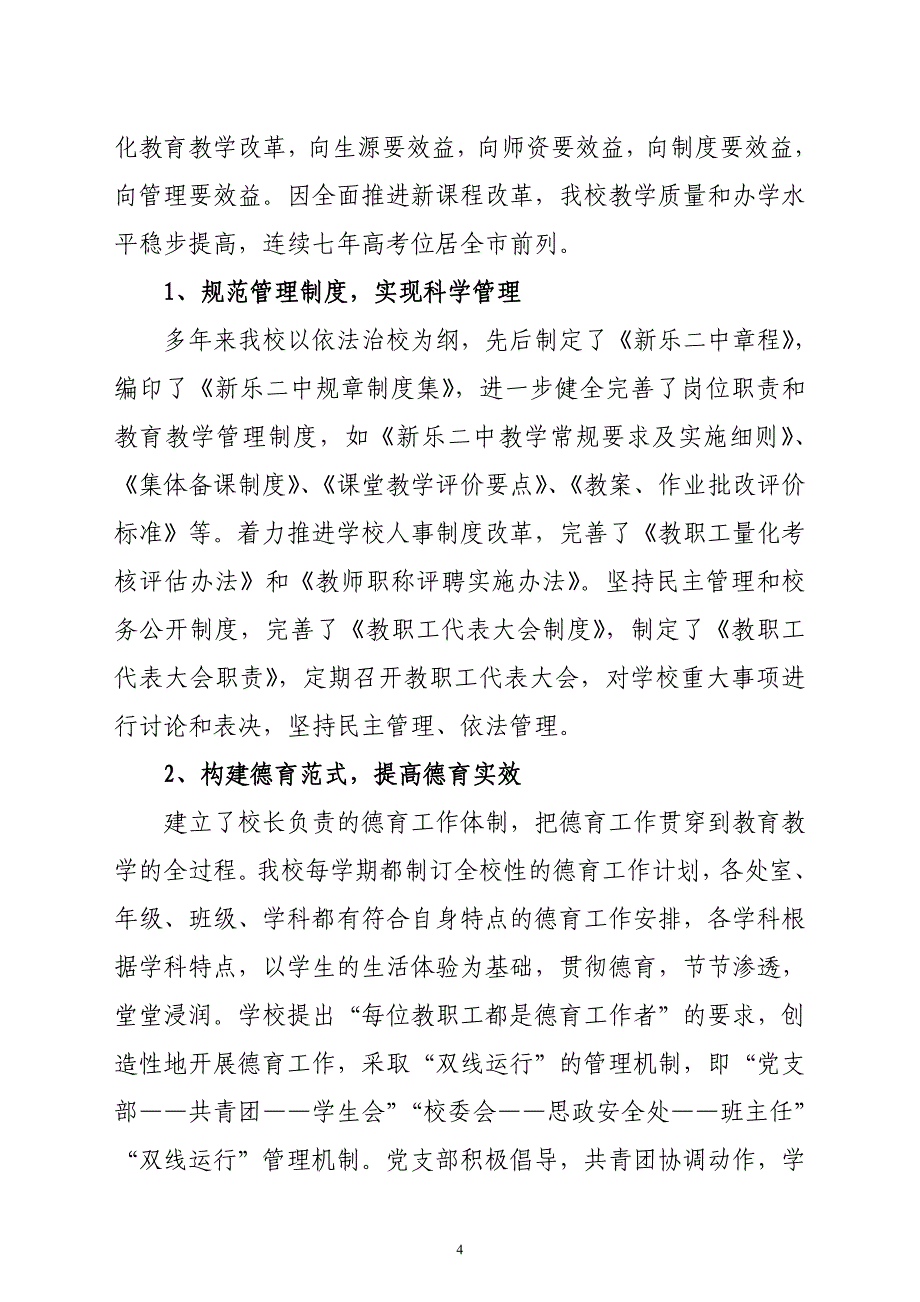 化教育教学改革，向生源要效益，向师资要效益，向制度要效益，
向管理要效益。因全面推进新课程改革，我校教学质量和办学水
平稳步提高，连续七年高考位居全市前列。
1、规范管理制度，实现科学管理
多年来我校以依法治校为纲，先后制定了《新乐二中章程》，
编印了《新乐二中规章制度集》，进一步健全完善了岗位职责和
教育教学管理制度，如《新乐二中教学常规要求及实施细则》、
《集体备课制度》、《课堂教学评价要点》、《教案、作业批改评价
标准》等。着力推进学校人事制度改革，完善了《教职工量化考
核评估办法》和《教师职称评聘实施办法》。坚持民主管理和校
务公开制度，完善了《教职工代表大会制度》，制定了《教职工
代表大会职责》，定期召开教职工代表大会，对学校重大事项进
行讨论和表决，坚持民主管理、依法管理。
2、构建德育范式，提高德育实效
建立了校长负责的德育工作体制，把德育工作贯穿到教育教
学的全过程。我校每学期都制订全校性的德育工作计划，各处室、
年级、班级、学科都有符合自身特点的德育工作安排，各学科根
据学科特点，以学生的生活体验为基础，贯彻德育，节节渗透，
堂堂浸润。学校提出“每位教职工都是德育工作者”的要求，创
造性地开展德育工作，采取“双线运行”的管理机制，即“党支
部——共青团——学生会”“校委会——思政安全处——班主任”
“双线运行”管理机制。党支部积极倡导，共青团协调动作，学
4